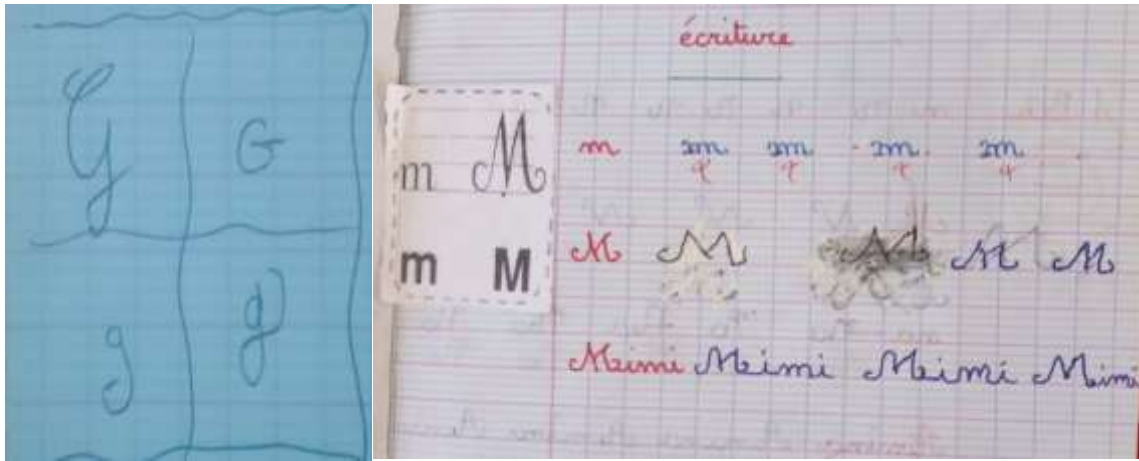 G G
g g
écriture
m M
m M
m m m m m
M M M M M
Meimi Meimi Meimi Mimi